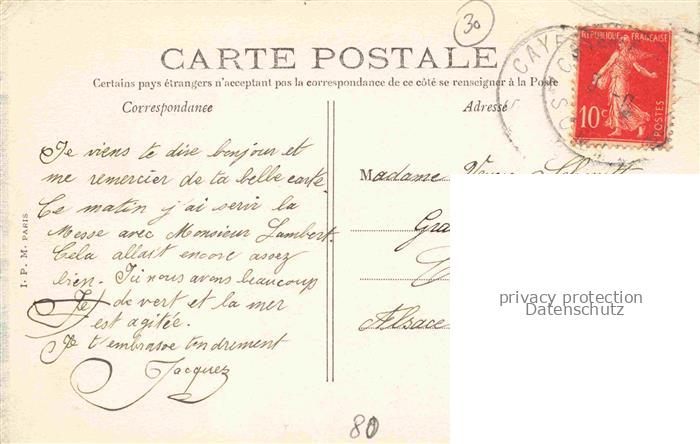 30
CARTE POSTALE
Certains pays étrangers n'acceptant pas la correspondance de ce côté se renseigner à la Poste
Correspondance
Adresse
CAYE
REPUBLIQUE FRANÇAISE
10c
POSTES
Je viens te dire bonjour et
me remercier de ta belle carte.
Ce matin j'ai servir la
Messe avec Monsieur Lambert.
Cela allait encore assez
bien. Ici nous avons beaucoup
de vert et la mer
est agitée.
Je t'embrasse tendrement
Jacques
Madame
Gra
Alsace
I. P. M. PARIS
privacy protection
Datenschutz
80